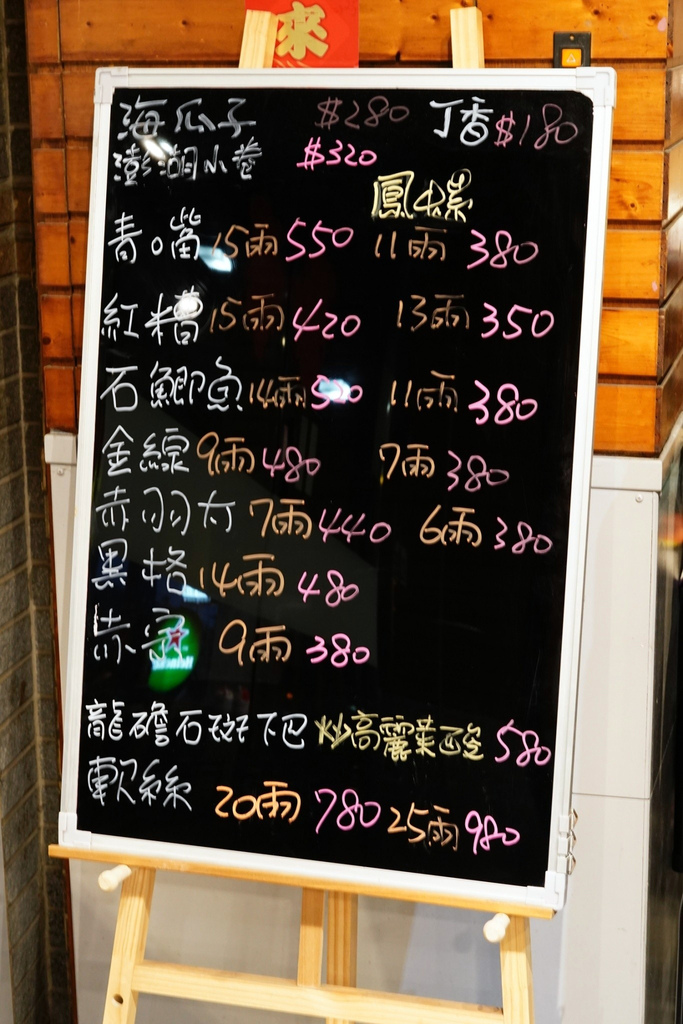 來
海瓜子 $280 丁香 $180
澎湖小卷 $320
鳳螺
青口嘴 15雨 550 11雨 380
紅糟 15雨 420 13雨 350
石鯽魚 14雨 11雨 380
金線 9雨 480 7雨 380
赤羽太 7雨 440 6雨 380
黑格 14雨 480
赤 9雨 380
龍膽石斑下巴 炒高麗菜酸 580
軟絲 20雨 780 25雨 980